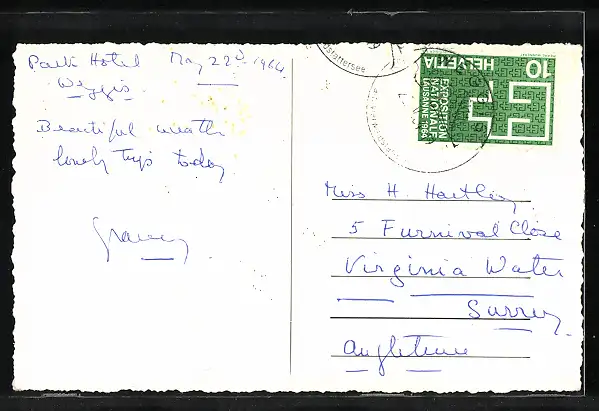 Park Hotel May 22d. 1964.
Weggis.
Beautiful weather
lovely trips today
Miss H. Hartley
5 Furnival Close
Virginia Water
Surrey.
Angleterre
10
HELVETIA
EXPOSITION
NATIONALE
LAUSANNE 1964